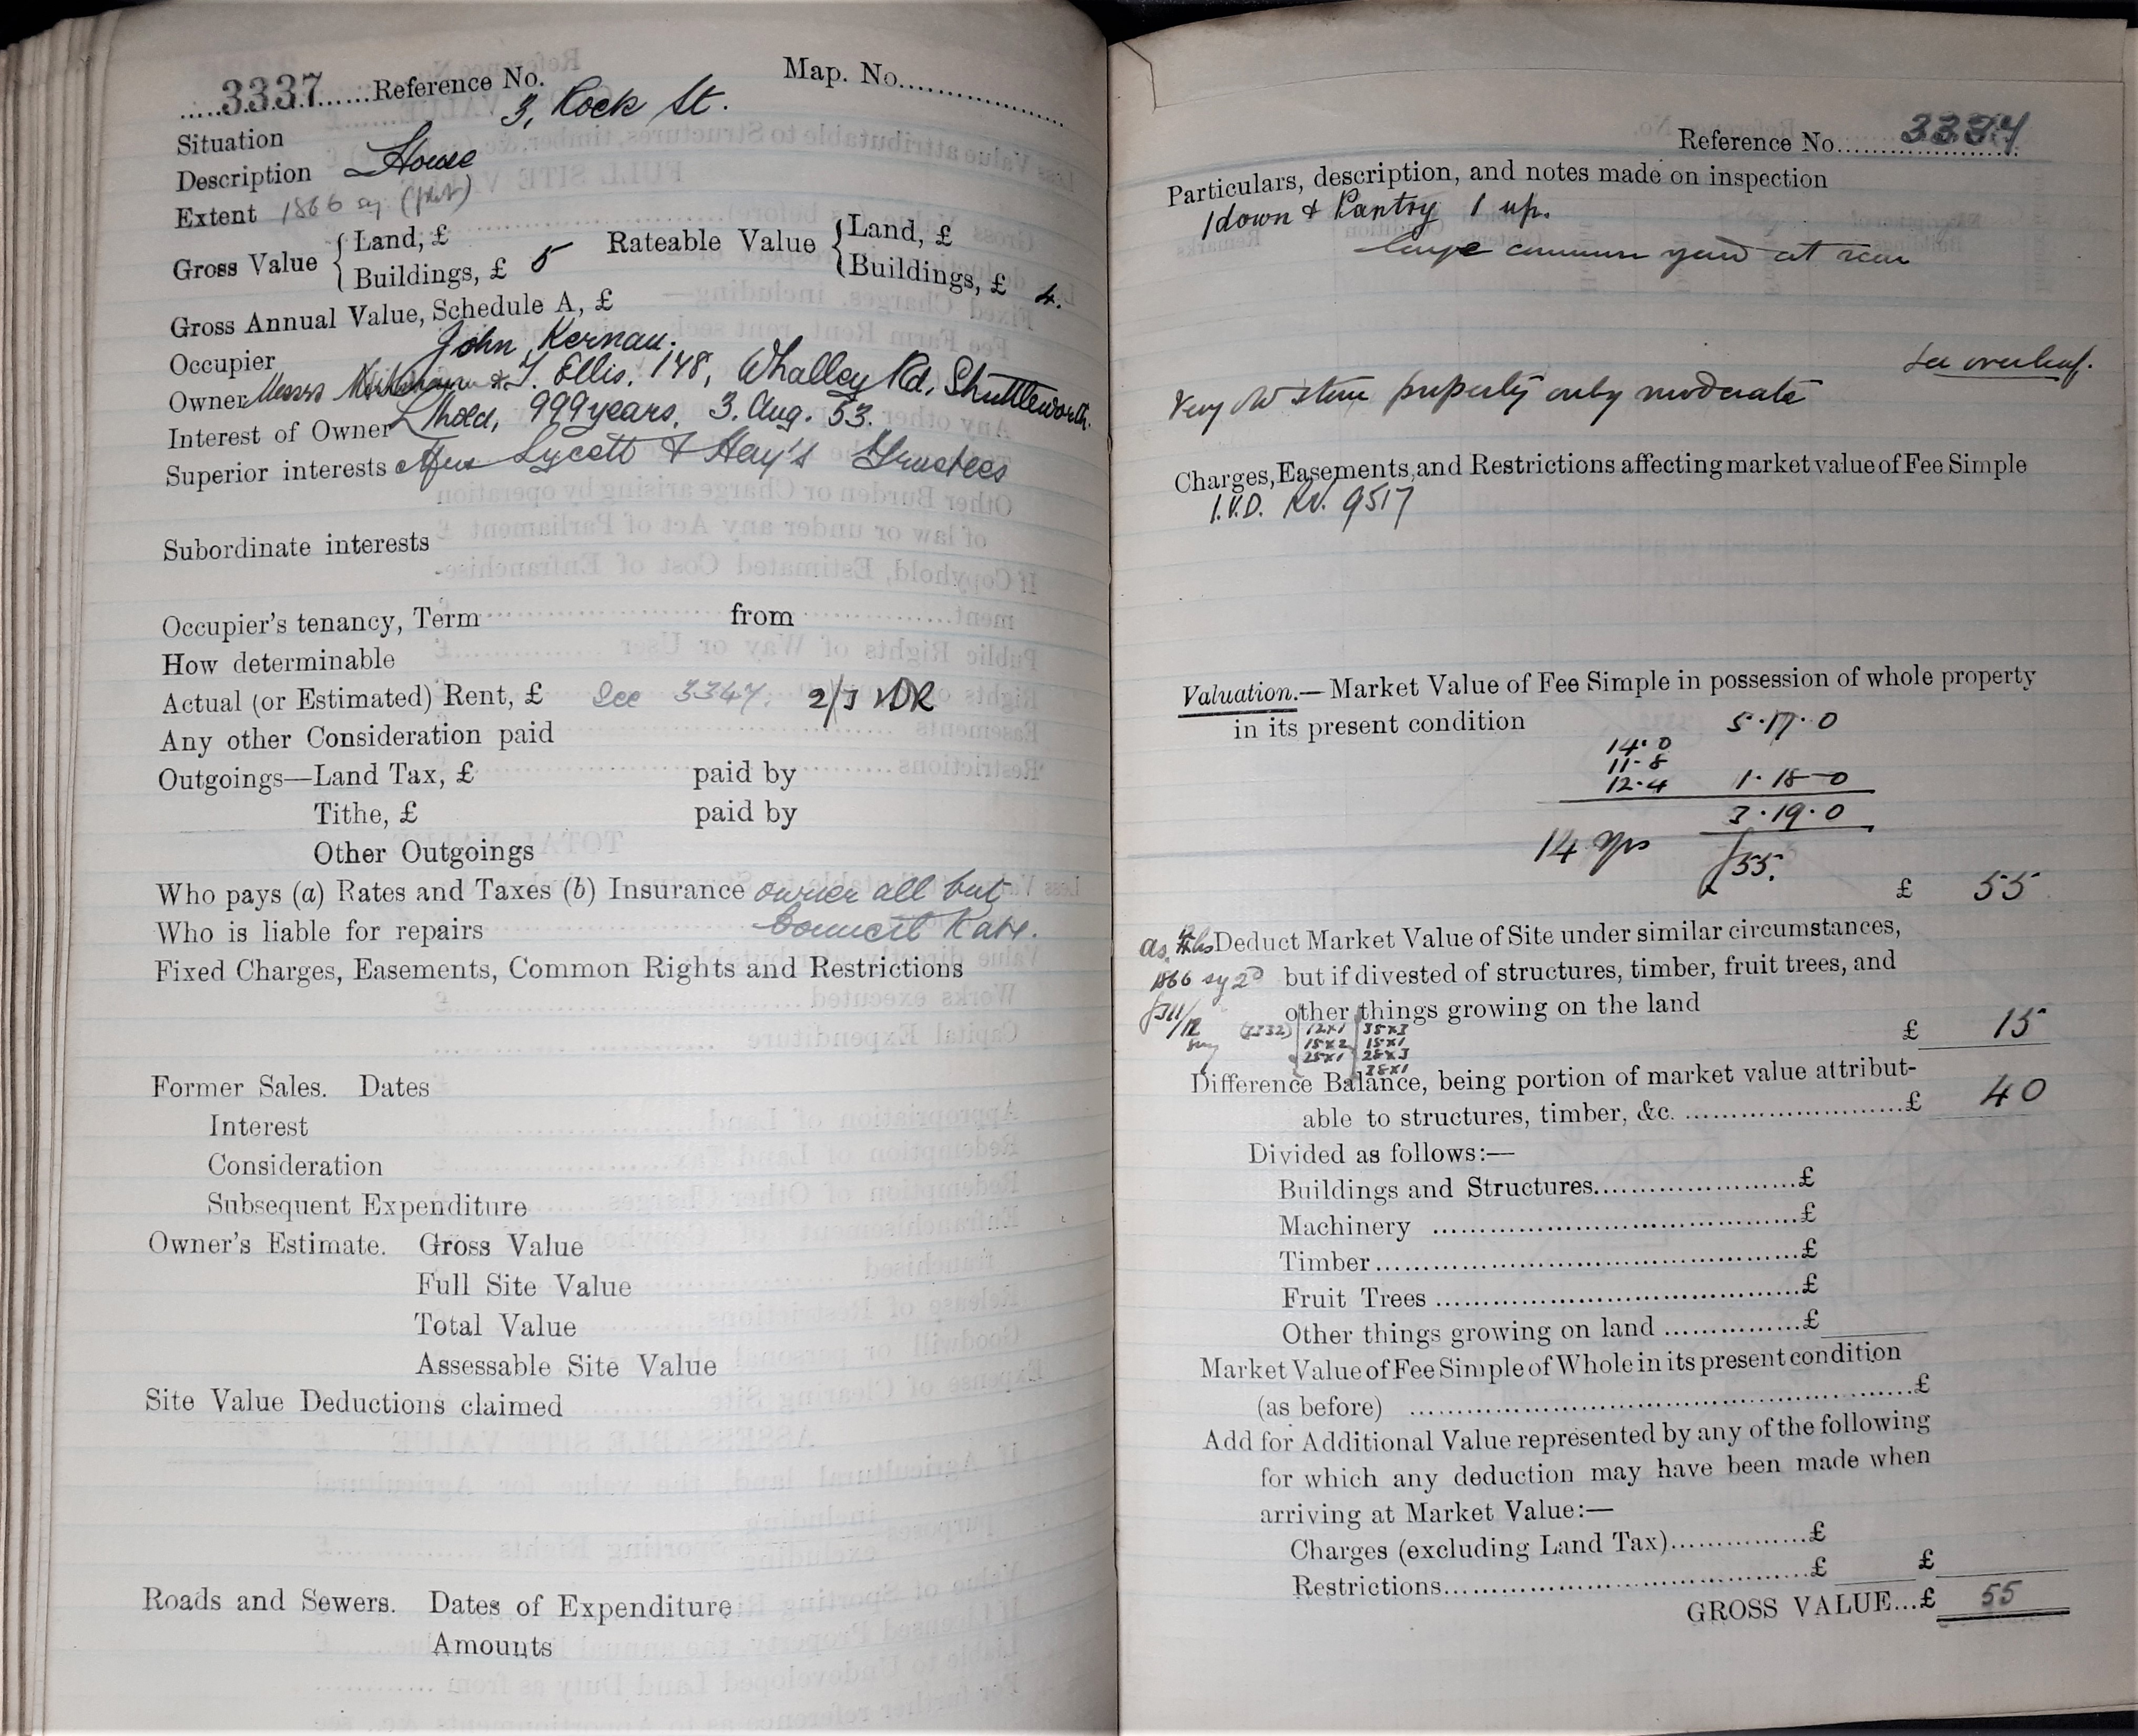 3337 Reference No. Map. No.
Situation 3, Rock St.
Description House
Extent 1866 sy (part)
Gross Value { Land, £ Rateable Value { Land, £
Buildings, £ 5 Buildings, £ 4.
Gross Annual Value, Schedule A, £
Occupier John Kernan.
Owner Messrs & T. Ellis. 148, Whalley Rd, Shuttleworth.
Interest of Owner L/hold, 999 years, 3. Aug. 53.
Superior interests Lycett & Hay's Trustees
Subordinate interests
Occupier's tenancy, Term from
How determinable
Actual (or Estimated) Rent, £ See 3347. 2/3 NDR
Any other Consideration paid
Outgoings—Land Tax, £ paid by
Tithe, £ paid by
Other Outgoings
Who pays (a) Rates and Taxes (b) Insurance owner all but
Who is liable for repairs Council Rate.
Fixed Charges, Easements, Common Rights and Restrictions
Former Sales. Dates
Interest
Consideration
Subsequent Expenditure
Owner's Estimate. Gross Value
Full Site Value
Total Value
Assessable Site Value
Site Value Deductions claimed
Roads and Sewers. Dates of Expenditure
Amounts
Reference No.
Particulars, description, and notes made on inspection
1 down & Pantry 1 up.
large common yard at rear
See overleaf.
Very old stone property only moderate
Charges, Easements, and Restrictions affecting market value of Fee Simple
I.V.D. Rv. 9517
Valuation.— Market Value of Fee Simple in possession of whole property
in its present condition 5.17.0
14.0
11.8
12.4 1.18-0
3.19.0
14 yps £55.
£ 55
as Deduct Market Value of Site under similar circumstances,
1866 sy 2d but if divested of structures, timber, fruit trees, and
£311/12 other things growing on the land
(3332) 12x1 35x3
15x2 15x1
25x1 25x3
£ 15
Difference Balance, being portion of market value attribut-
able to structures, timber, &c. £ 40
Divided as follows:—
Buildings and Structures £
Machinery £
Timber £
Fruit Trees £
Other things growing on land £
Market Value of Fee Simple of Whole in its present condition
(as before) £
Add for Additional Value represented by any of the following
for which any deduction may have been made when
arriving at Market Value:—
Charges (excluding Land Tax) £
Restrictions £ £
GROSS VALUE...£ 55